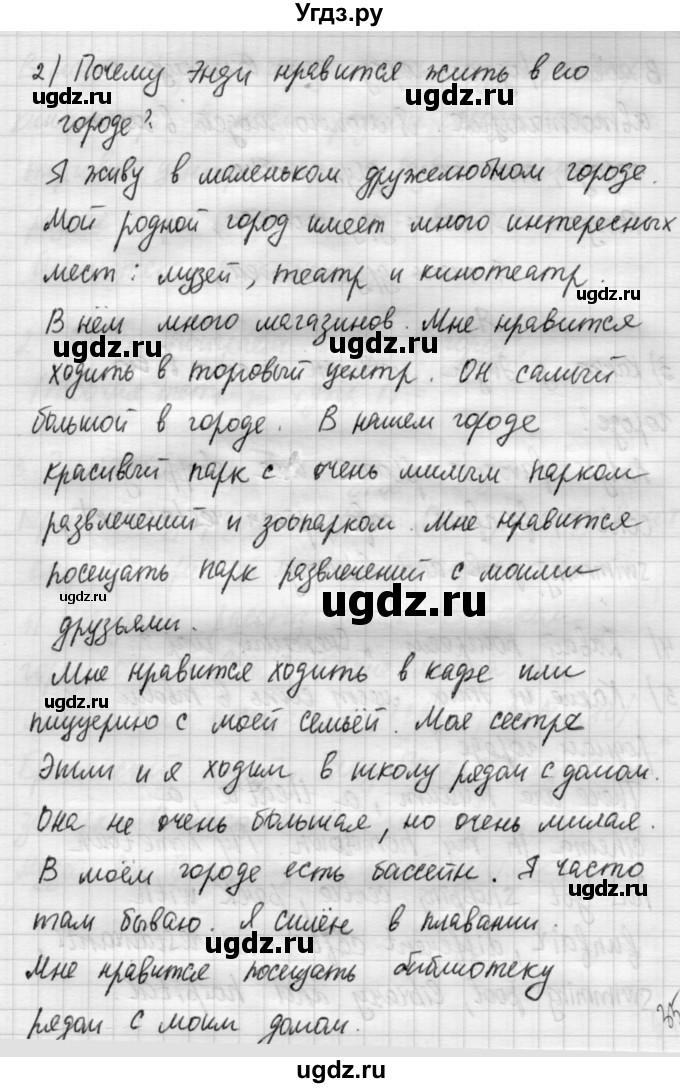 Угдз.ру
2) Почему Энди нравится жить в его
угдз.ру
угдз.ру
городе?
Я живу в маленьком дружелюбном городе.
Мой родной город имеет много интересных
мест: музей, театр и кинотеатр.
угдз.ру
В нём много магазинов. Мне нравится
угдз.ру
угдз.ру
ходить в торговый центр. Он самый
большой в городе. В нашем городе
красивый парк с очень милым парком
развлечений и зоопарком. Мне нравится
посещать парк развлечений с моими
угдз.ру
угдз.ру
друзьями.
Мне нравится ходить в кафе или
пиццерию с моей семьёй. Моя сестра
Эшли и я ходим в школу рядом с домом.
Она не очень большая, но очень милая.
В моём городе есть бассейн. Я часто
угдз.ру
там бываю. Я силён в плавании.
угдз.ру
Мне нравится посещать библиотеку
рядом с моим домом.
35
угдз.ру